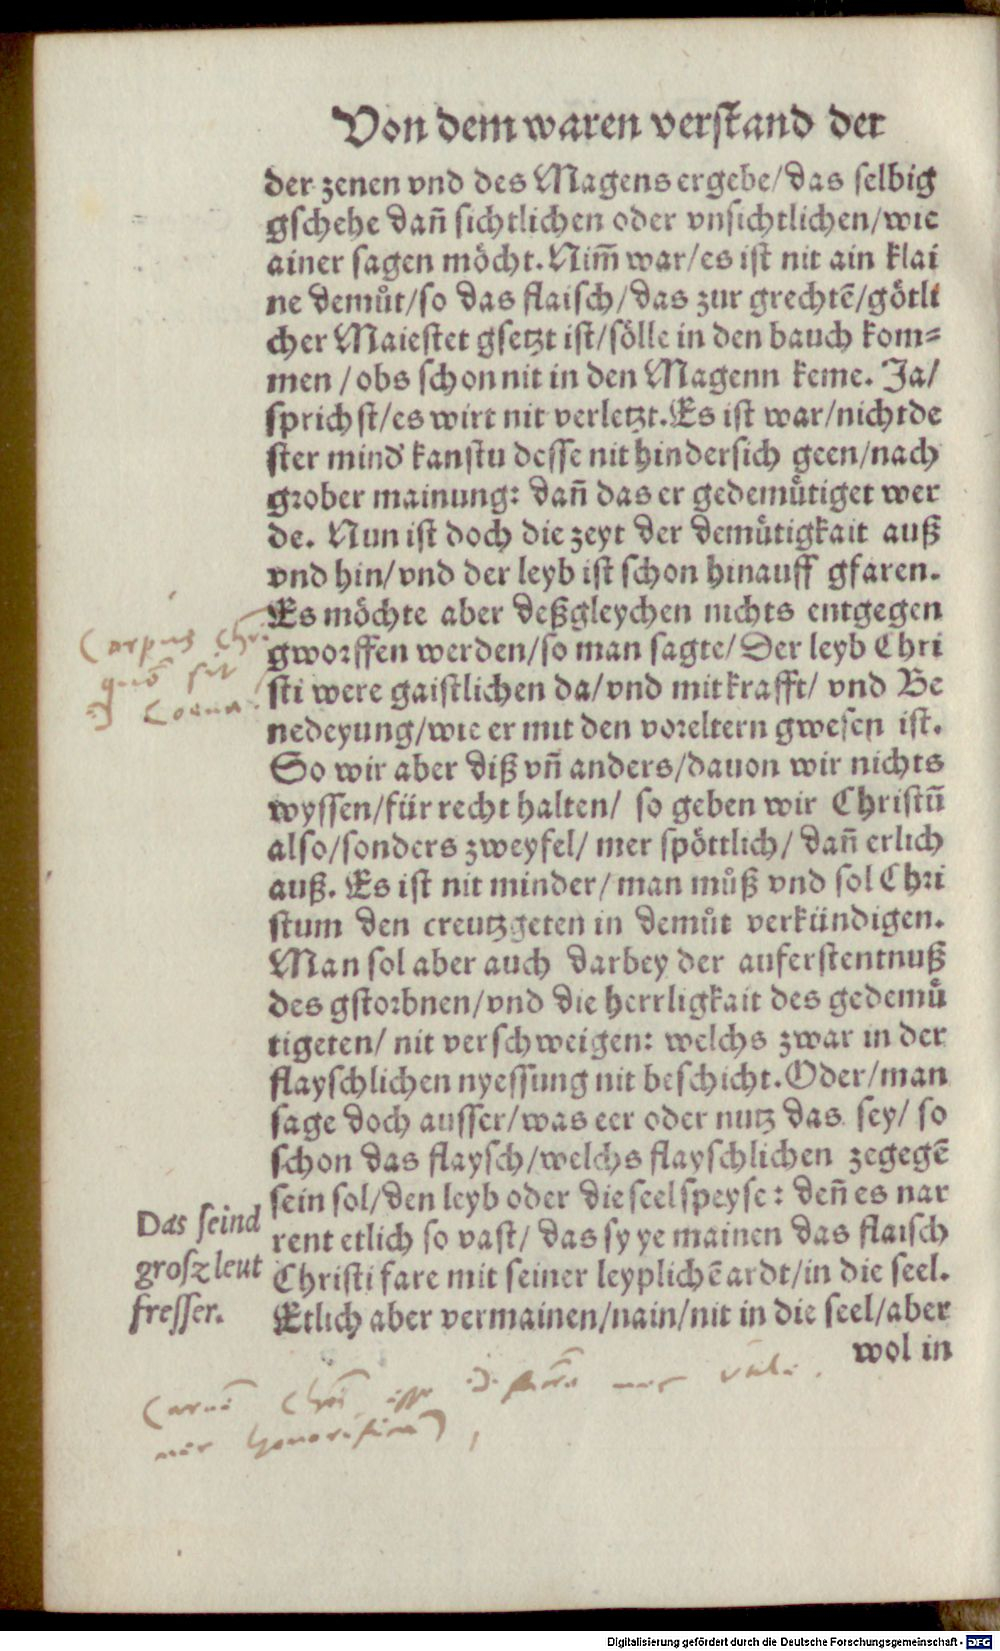 Von dem waren verstand der
der zenen vnd des Magens ergebe/das selbig
gschehe dañ sichtlichen oder vnsichtlichen/wie
ainer sagen möcht. Nim̃ war/es ist nit ain klai
ne demůt/so das flaisch/das zur grechtẽ/götli
cher Maiestet gsetzt ist/sölle in den bauch kom⸗
men/obs schon nit in den Magenn keme. Ja/
sprichst/es wirt nit verletzt. Es ist war/nichtde
ster mind' kanstu desse nit hindersich geen/nach
grober mainung: dañ das er gedemütiget wer
de. Nun ist doch die zeyt der demütigkait auß
vnd hin/vnd der leyb ist schon hinauff gfaren.
Es möchte aber deßgleychen nichts entgegen
gworffen werden/so man sagte/Der leyb Chri
sti were gaistlichen da/vnd mit krafft/vnd Be
nedeyung/wie er mit den voreltern gwesen ist.
So wir aber diß vñ anders/dauon wir nichts
wyssen/für recht halten/ so geben wir Christũ
also/sonders zweyfel/ mer spöttlich/ dañ erlich
auß. Es ist nit minder/man můß vnd sol Chri
stum den creutzgeten in demůt verkündigen.
Man sol aber auch darbey der auferstentnuß
des gstorbnen/vnd die herrligkait des gedemü
tigeten/ nit verschweigen: welchs zwar in der
flayschlichen nyessung nit beschicht. Oder/man
sage doch ausser/was eer oder nutz das sey/ so
schon das flaysch/welchs flayschlichen zegegẽ
sein sol/den leyb oder die seel speyse: deñ es nar
rent etlich so vast/ das sy ye mainen das flaisch
Christi fare mit seiner leyplichẽ ardt/in die seel.
Etlich aber vermainen/nain/nit in die seel/aber
wol in
Corpus Chri
sit
Das seind
grosz leut
fresser.